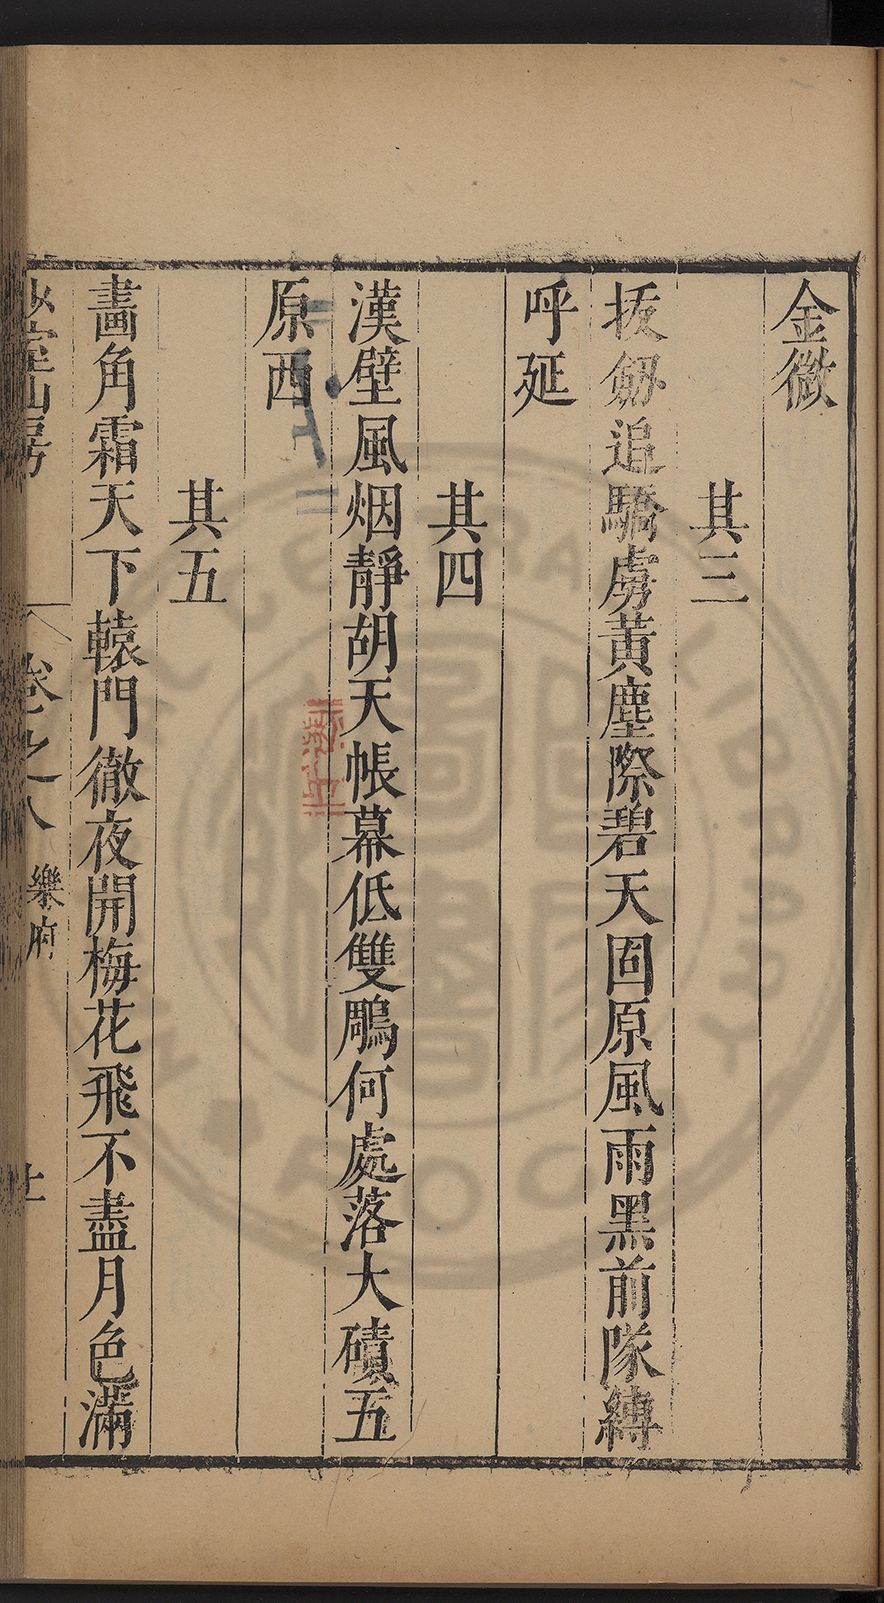 金微
其三
拔劔追驕虜黃塵際碧天固原風雨黑前隊縛
呼延
其四
漢壁風烟靜胡天帳幕低雙鵰何處落大磧五
原西
其五
畫角霜天下轅門徹夜開梅花飛不盡月色滿
室山房
卷之八
樂府